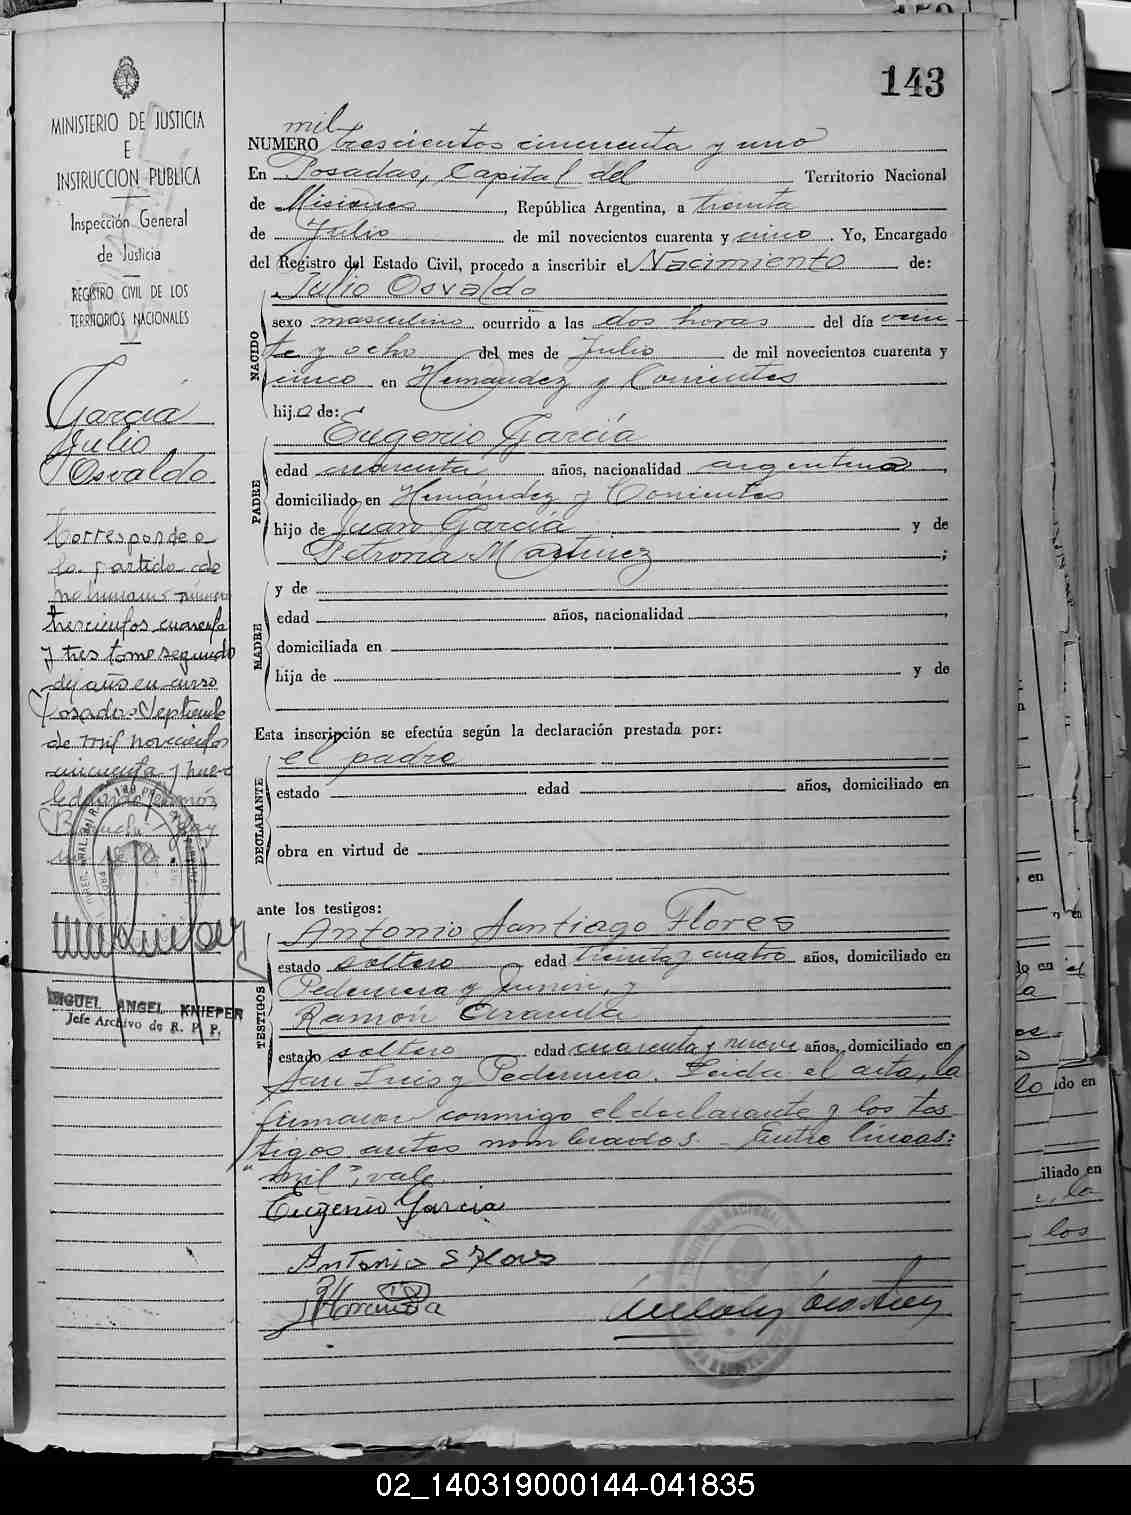 143
MINISTERIO DE JUSTICIA
E
INSTRUCCION PUBLICA
Inspección General
de Justicia
REGISTRO CIVIL DE LOS
TERRITORIOS NACIONALES
García
Julio
Osvaldo
Corresponde a
la partida de
número
trescientos cuarenta
y tres tomo segundo
del año en curso
Posadas Septiembre
de mil novecientos
cincuenta y nueve
MIGUEL ANGEL KNIEPER
Jefe Archivo de R. P. P.
mil
NUMERO trescientos cincuenta y uno
En Posadas, Capital del Territorio Nacional
de Misiones, República Argentina, a treinta
de Julio de mil novecientos cuarenta y cinco. Yo, Encargado
del Registro del Estado Civil, procedo a inscribir el Nacimiento de:
NACIDO
Julio Osvaldo
sexo masculino ocurrido a las dos horas del día vein
te y ocho del mes de Julio de mil novecientos cuarenta y
cinco en Hernandez y Corrientes
hijo de:
PADRE
Eugenio García
edad cuarenta años, nacionalidad argentina,
domiciliado en Hernández y Corrientes
hijo de Juan García y de
Petrona Martinez;
MADRE
y de
edad años, nacionalidad,
domiciliada en
hija de y de
Esta inscripción se efectúa según la declaración prestada por:
DECLARANTE
el padre
estado edad años, domiciliado en
obra en virtud de
ante los testigos:
TESTIGOS
Antonio Santiago Flores
estado soltero edad treinta y cuatro años, domiciliado en
Pedernera y Junin, y
Ramón Aranda
estado soltero edad cuarenta y nueve años, domiciliado en
San Luis y Pedernera. Leida el acta, la
firmaron conmigo el declarante y los tes
tigos antes nombrados. - Entre líneas:
"mil", vale.
Eugenio Garcia
Antonio S Flores
02_140319000144-041835